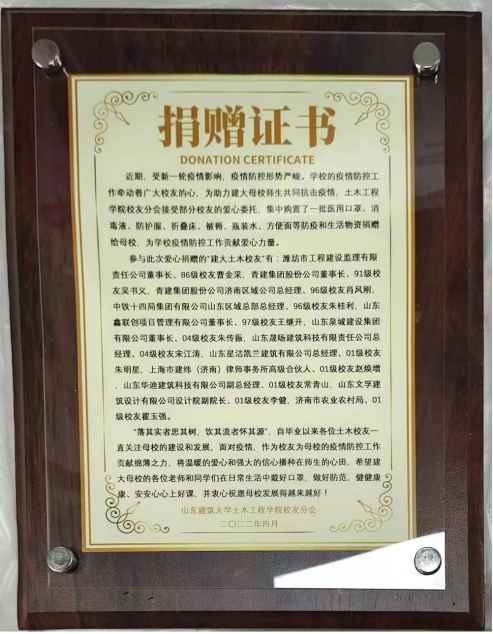 捐赠证书
DONATION CERTIFICATE
近期，受新一轮疫情影响，疫情防控形势严峻。学校的疫情防控工
作牵动着广大校友的心，为助力建大母校师生共同抗击疫情，土木工程
学院校友分会接受部分校友的爱心委托，集中购置了一批医用口罩、消
毒液、防护服、折叠床、被褥、瓶装水、方便面等防疫和生活物资捐赠
给母校，为学校疫情防控工作贡献爱心力量。
参与此次爱心捐赠的“建大土木校友”有：潍坊市工程建设监理有限
责任公司董事长、86级校友曹金采，青建集团股份公司董事长、91级校
友吴书义，青建集团股份公司济南区域公司总经理、96级校友肖风刚，
中铁十四局集团有限公司山东区域总部总经理、96级校友朱桂利，山东
鑫联创项目管理有限公司董事长、97级校友王继开，山东泉城建设集团
有限公司董事长、04级校友朱传振，山东晟旸建筑科技有限责任公司总
经理、04级校友宋江涛，山东星洁凯兰建筑有限公司总经理、01级校友
朱明星，上海市建纬（济南）律师事务所高级合伙人、01级校友赵焕增
，山东华迪建筑科技有限公司副总经理、01级校友常青山，山东文孚建
筑设计有限公司设计院副院长、01级校友李健，济南市农业农村局、01
级校友翟玉强。
“落其实者思其树，饮其流者怀其源”，自毕业以来各位土木校友一
直关注母校的建设和发展，面对疫情，作为校友为母校的疫情防控工作
贡献绵薄之力，将温暖的爱心和强大的信心播种在师生的心田，希望建
大母校的各位老师和同学们在日常生活中戴好口罩，做好防范，健健康
康、安安心心上好课，并衷心祝愿母校发展得越来越好！
山东建筑大学土木工程学院校友分会
二〇二二年四月